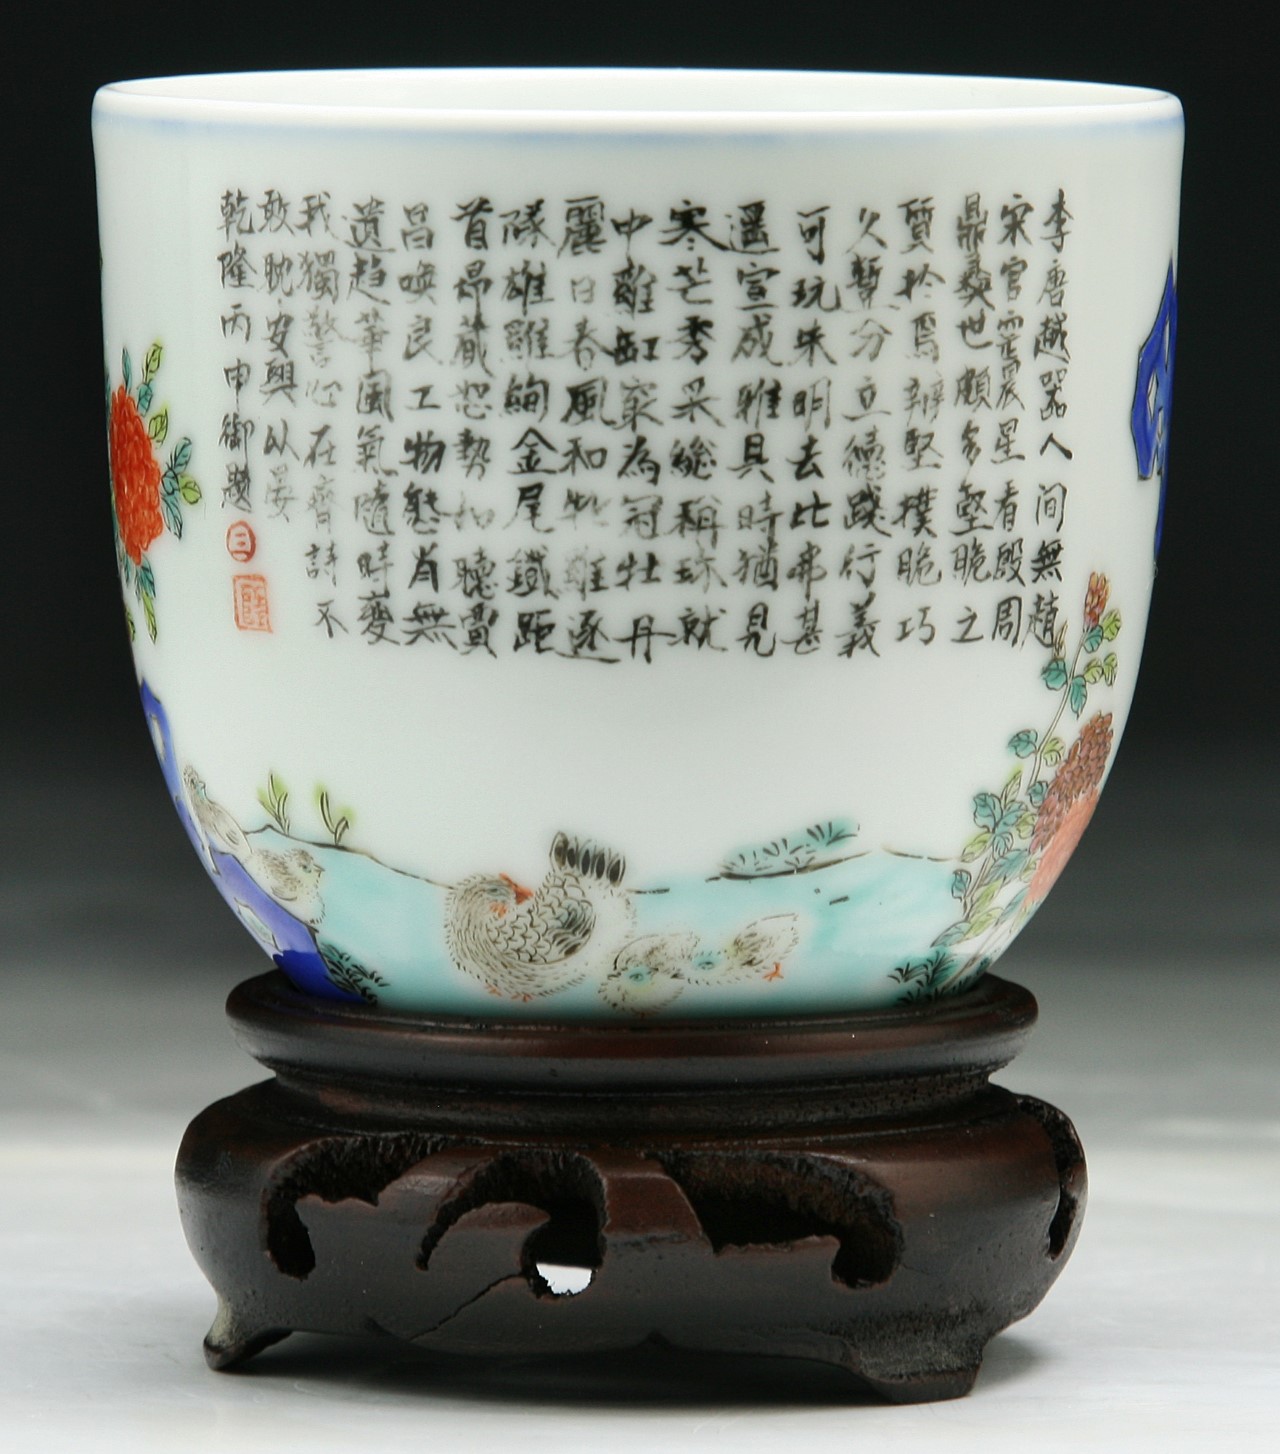 李唐越器人间無趙
宋官窑晨星看殷周
鼎彝世頗多堅脆之
質於焉辨堅樸脆巧
久暫分立德踐行義
可玩朱明去比弗甚
遥宣成雅具時猶見
寒芒秀采總稱珎就
中雞缸寀為冠牡丹
麗日春風和牝雞逐
隊雄雞絢金尾鐵距
首昂藏怒勢如聽賈
昌喚良工物態肖無
遺趋華風氣隨時變
我獨警心在齊詩不
敢耽安興以晏
乾隆丙申御题
三